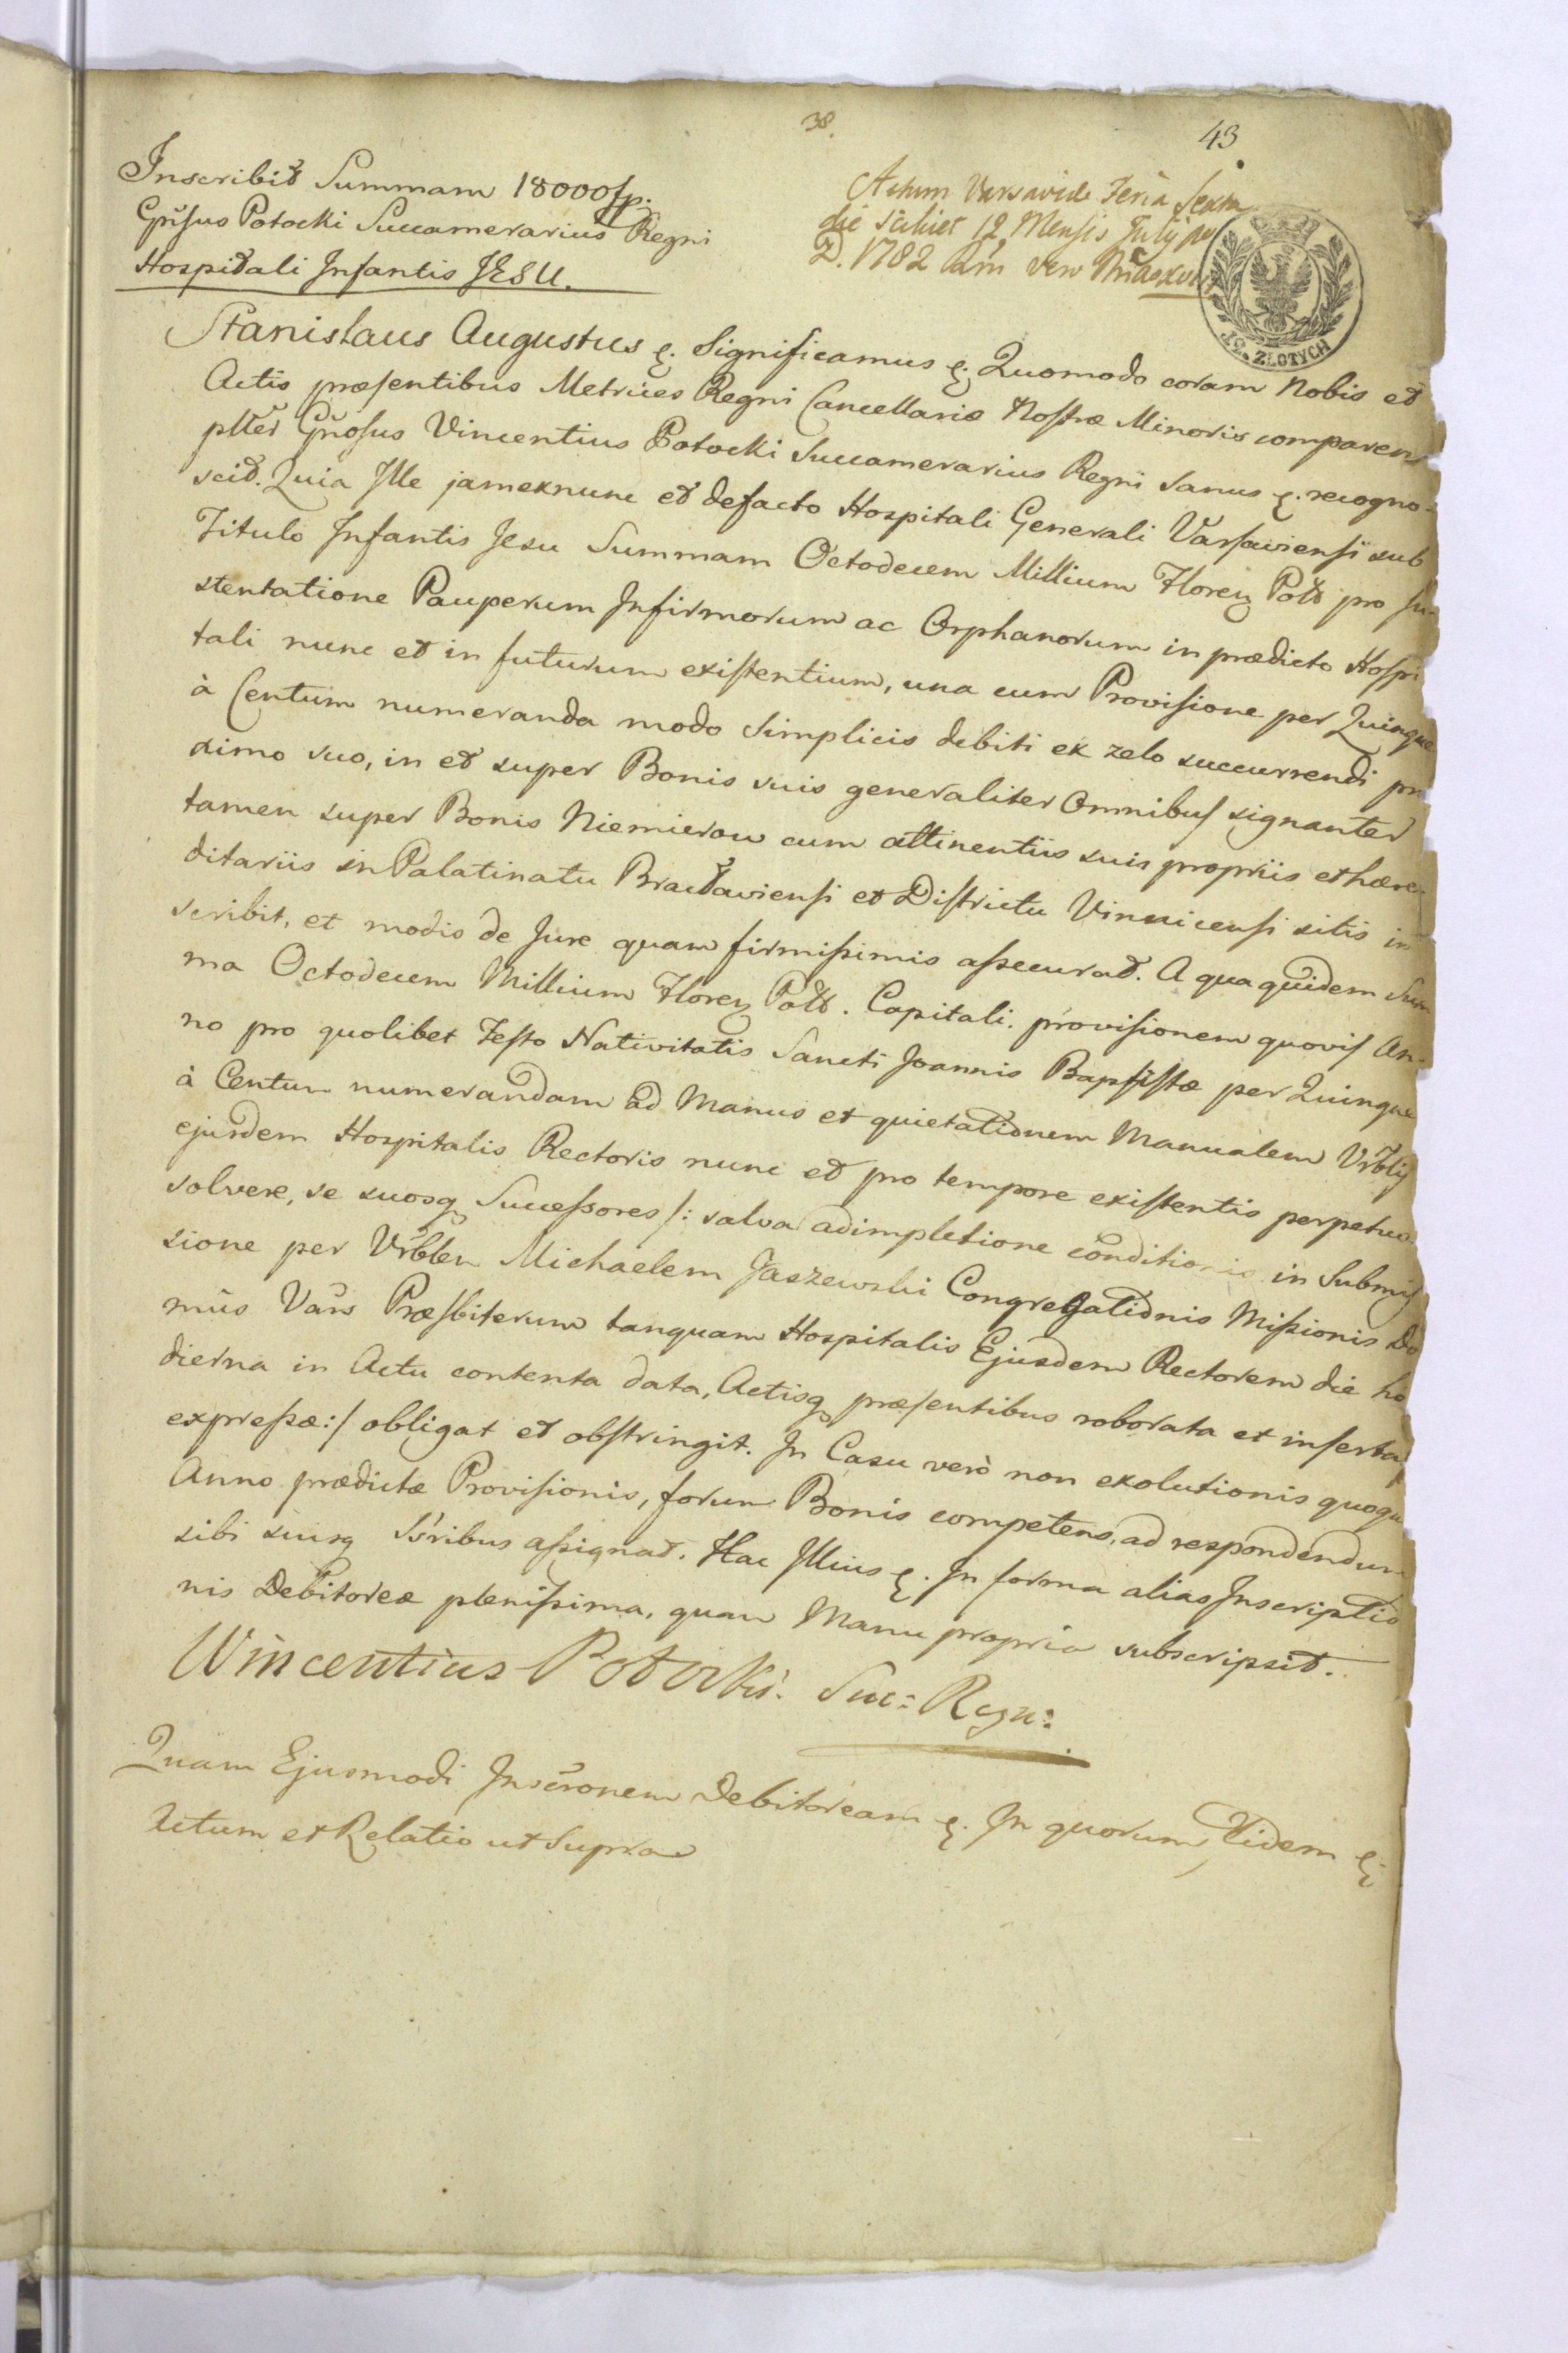 38.
43
Inscribit Summam 18000 fp.
Gñsus Potocki Succamerarius Regni
Hospitali Infantis JESU.
Actum Varsaviæ Feria Sexta
die scilicet 12 Mensis July
D. 1782 Añi vero
12. ZŁOTYCH
Stanislaus Augustus &. Significamus &. Quomodo coram Nobis et
Actis præsentibus Metrices Regni Cancellariæ Nostræ Minoris comparens
plter Gñosus Vincentius Potocki Succamerarius Regni Sanus &. recogno-
scit. Quia Ille jamexnunc et defacto Hospitali Generali Varsaviensi sub
Titulo Infantis Jesu Summam Octodecem Millium Floren Polł pro su-
stentatione Pauperum Infirmorum ac Orphanorum in prædicto Hospi
tali nunc et in futurum existentium, una cum Provisione per Quinque
à Centum numeranda modo simplicis debiti ex zelo succurrendi pro
ximo suo, in et super Bonis suis generaliter Omnibus signanter
tamen super Bonis Niemierow cum attinentiis suis propriis et hære-
ditariis in Palatinatu Bracłaviensi et Districtu Vinnicensi sitis in
scribit, et modis de Jure quam firmissimis assecurat. A qua quidem Sum
ma Octodecem Millium Floren Polł. Capitali. provisionem quovis An-
no pro quolibet Festo Nativitatis Sancti Joannis Baptistæ per Quinque
à Centum numerandam ad Manus et quietationem Manualem Vrblis
ejusdem Hospitalis Rectoris nunc et pro tempore existentis perpetuo
solvere, se suosq Successores /: salva adimpletione conditionis in Submis
sione per Vrblem Michaelem Jaszewski Congregationis Missionis Do
mûs Vars Præsbiterum tanquam Hospitalis Ejusdem Rectorem die ho
dierna in Actu contenta data, Actisq præsentibus roborata et inserta
expressæ :/ obligat et obstringit. In Casu verò non exolutionis quoqu
Anno prædictæ Provisionis, forum Bonis competens, ad respondendum
sibi suisq Ssribus assignat. Hac Illius &. In forma alias Inscriptio
nis Debitoreæ plenissima, quam Manu propria subscripsit.
Wincentius Potocki. Suc: Regn:
Quam Ejusmodi Inscronem Debitoream &. In quorum Fidem &.
Actum et Relatio ut Supra